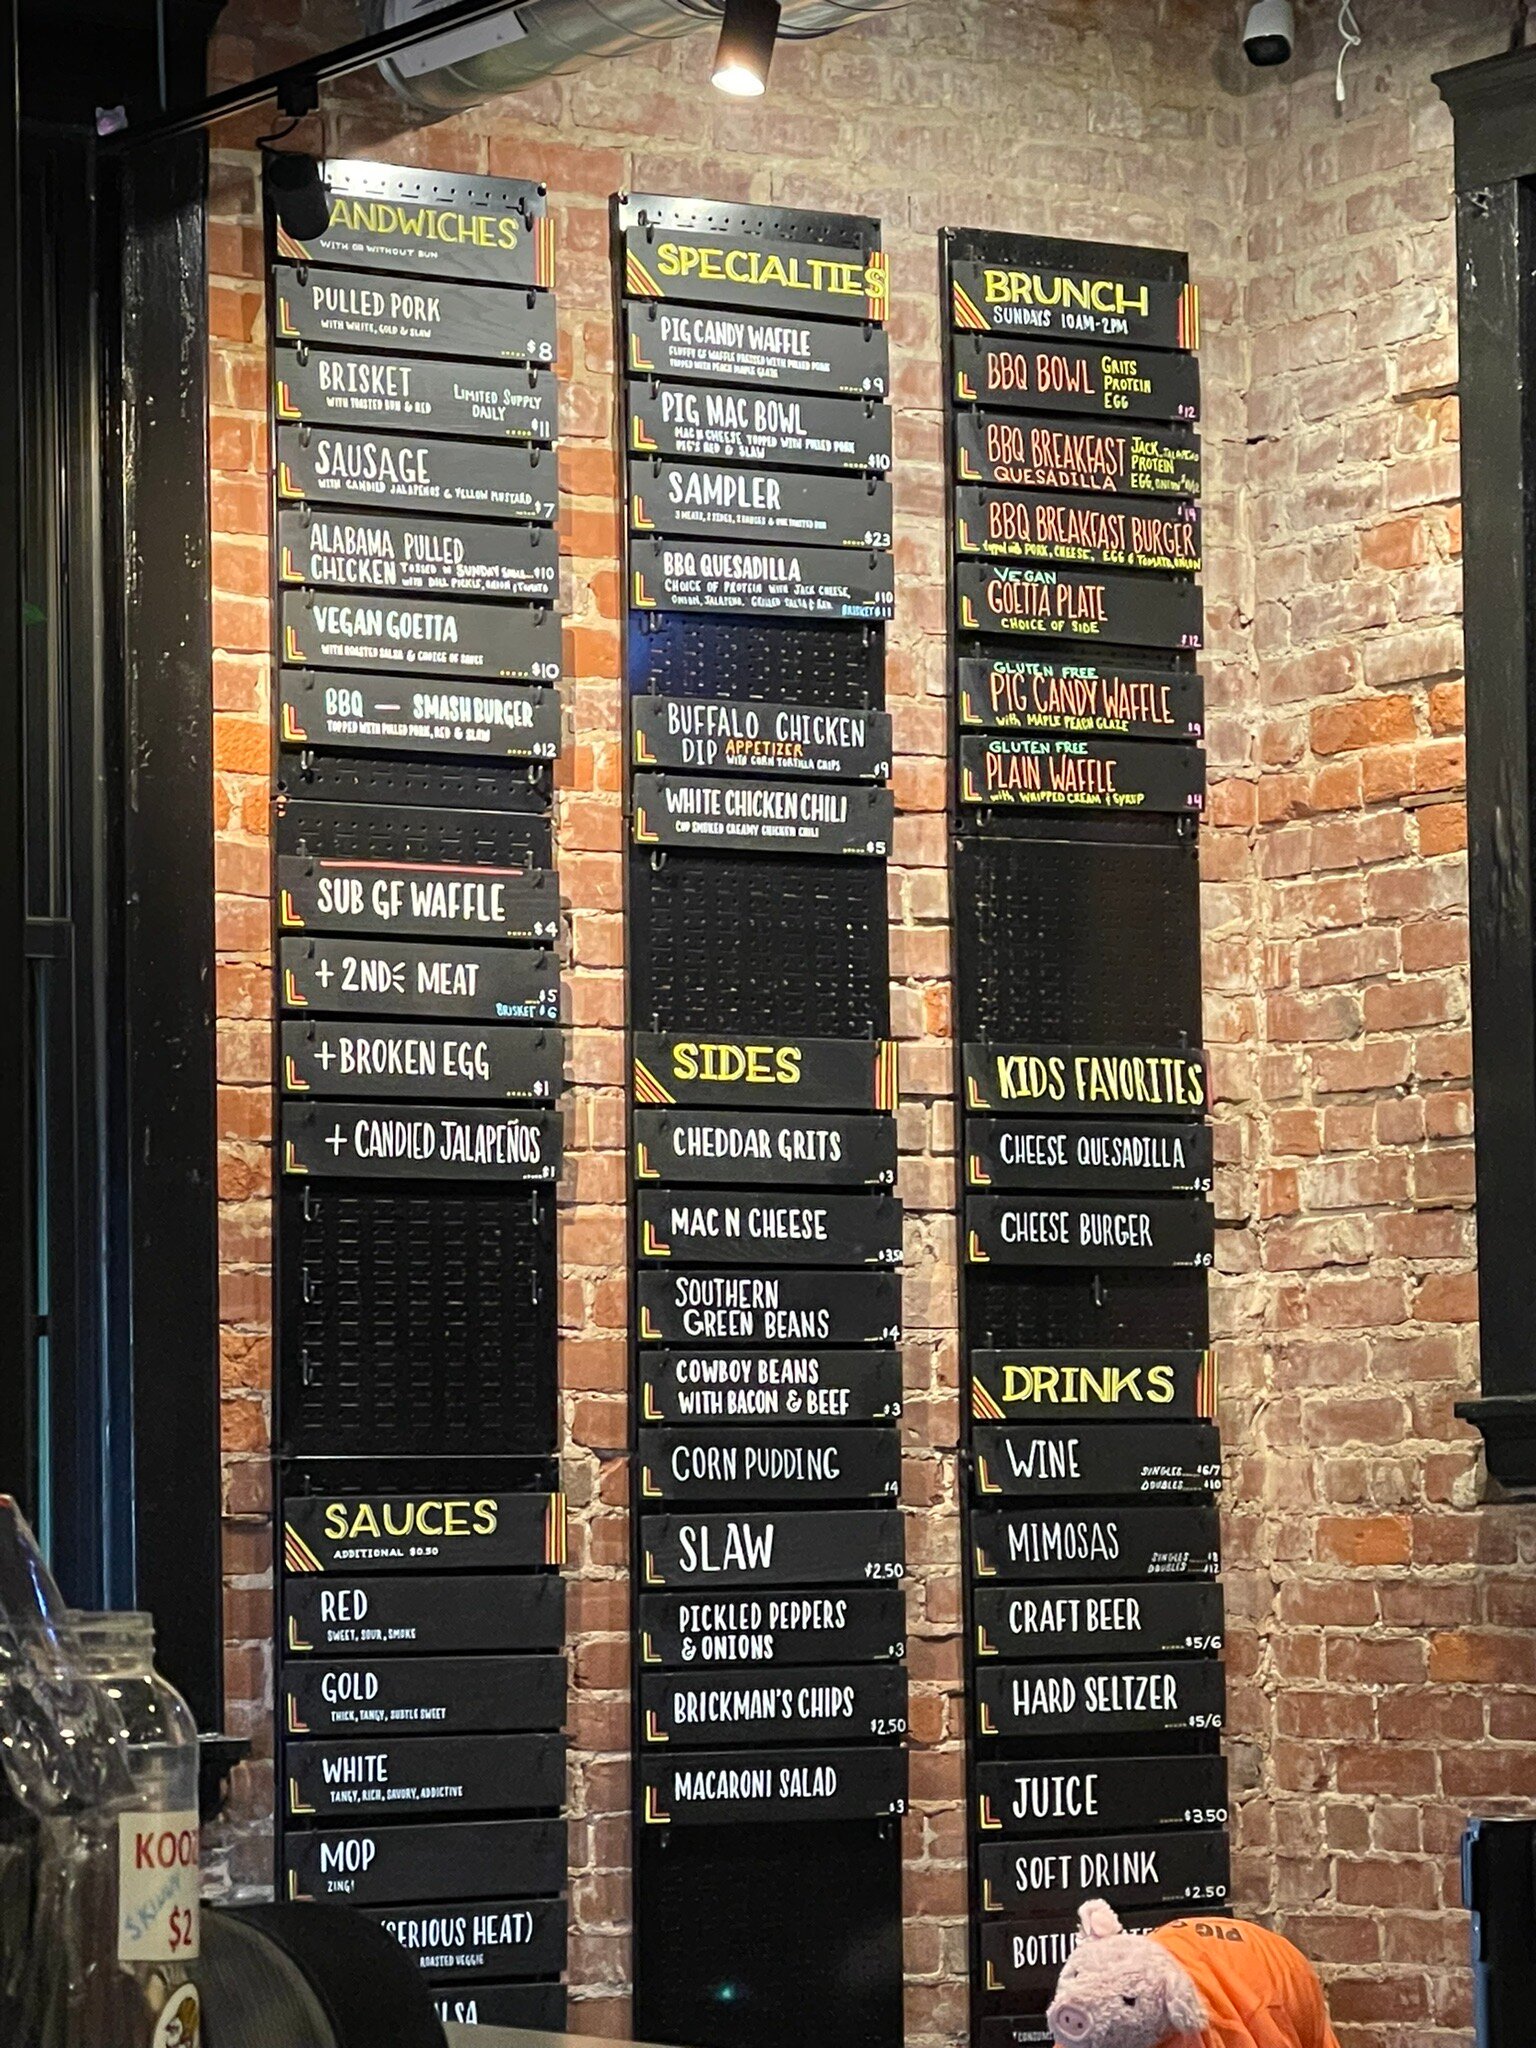 ANDWICHES
WITH OR WITHOUT BUN
PULLED PORK
WITH WHITE, GOLD & SLAW
.....$8
BRISKET
WITH TOASTED BUN & RED
LIMITED SUPPLY
DAILY
.....$11
SAUSAGE
WITH CANDIED JALAPEÑOS & YELLOW MUSTARD
$7
ALABAMA PULLED
CHICKEN TOSSED IN SUNDAY $10
WITH DILL PICKLES, ONION & TOMATO
VEGAN GOETTA
WITH ROASTED SALSA & CHOICE OF SAUCE
.....$10
BBQ — SMASHBURGER
TOPPED WITH PULLED PORK, RED & SLAW
.....$12
SUB GF WAFFLE
.....$4
+ 2ND MEAT
$5
BRISKET $6
+ BROKEN EGG
.....$1
+ CANDIED JALAPEÑOS
$1
SAUCES
ADDITIONAL $0.50
RED
SWEET, SOUR, SMOKE
GOLD
THICK, TANGY, SUBTLE SWEET
WHITE
TANGY, RICH, SAVORY, ADDICTIVE
MOP
ZING!
(SERIOUS HEAT)
ROASTED VEGGIE
LSA
SPECIALTIES
PIG CANDY WAFFLE
FLUFFY GF WAFFLE PRESSED WITH PULLED PORK
TOPPED WITH PEACH MAPLE GLAZE
.....$9
PIG MAC BOWL
MAC N CHEESE TOPPED WITH PULLED PORK
PIG'S RED & SLAW
.....$10
SAMPLER
3 MEATS, 2 SIDES, 2 SAUCES & ONE TOASTED BUN
.....$23
BBQ QUESADILLA
CHOICE OF PROTEIN WITH JACK CHEESE, $10
ONION, JALAPENO, GRILLED SALSA & RED BRISKET $11
BUFFALO CHICKEN
DIP APPETIZER
WITH CORN TORTILLA CHIPS
$9
WHITE CHICKEN CHILI
CUP SMOKED CREAMY CHICKEN CHILI
.....$5
SIDES
CHEDDAR GRITS
$3
MAC N CHEESE
$3.50
SOUTHERN
GREEN BEANS
$4
COWBOY BEANS
WITH BACON & BEEF
$3
CORN PUDDING
$4
SLAW
$2.50
PICKLED PEPPERS
& ONIONS
$3
BRICKMAN'S CHIPS
$2.50
MACARONI SALAD
$3
BRUNCH
SUNDAYS 10AM-2PM
BBQ BOWL
GRITS
PROTEIN
EGG
$12
BBQ BREAKFAST
QUESADILLA
JACK, JALAPENO
PROTEIN
EGG, ONION
$14
BBQ BREAKFAST BURGER
topped with PORK, CHEESE, EGG & TOMATO, ONION
VEGAN
GOETTA PLATE
CHOICE OF SIDE
$12
GLUTEN FREE
PIG CANDY WAFFLE
with MAPLE PEACH GLAZE
$9
GLUTEN FREE
PLAIN WAFFLE
with WHIPPED CREAM & SYRUP
$4
KIDS FAVORITES
CHEESE QUESADILLA
$5
CHEESE BURGER
$6
DRINKS
WINE
SINGLES $6/7
DOUBLES $10
MIMOSAS
SINGLES $8
DOUBLES $12
CRAFT BEER
.....$5/6
HARD SELTZER
.....$5/6
JUICE
$3.50
SOFT DRINK
$2.50
BOTTL
KOOZ
$2
PIG